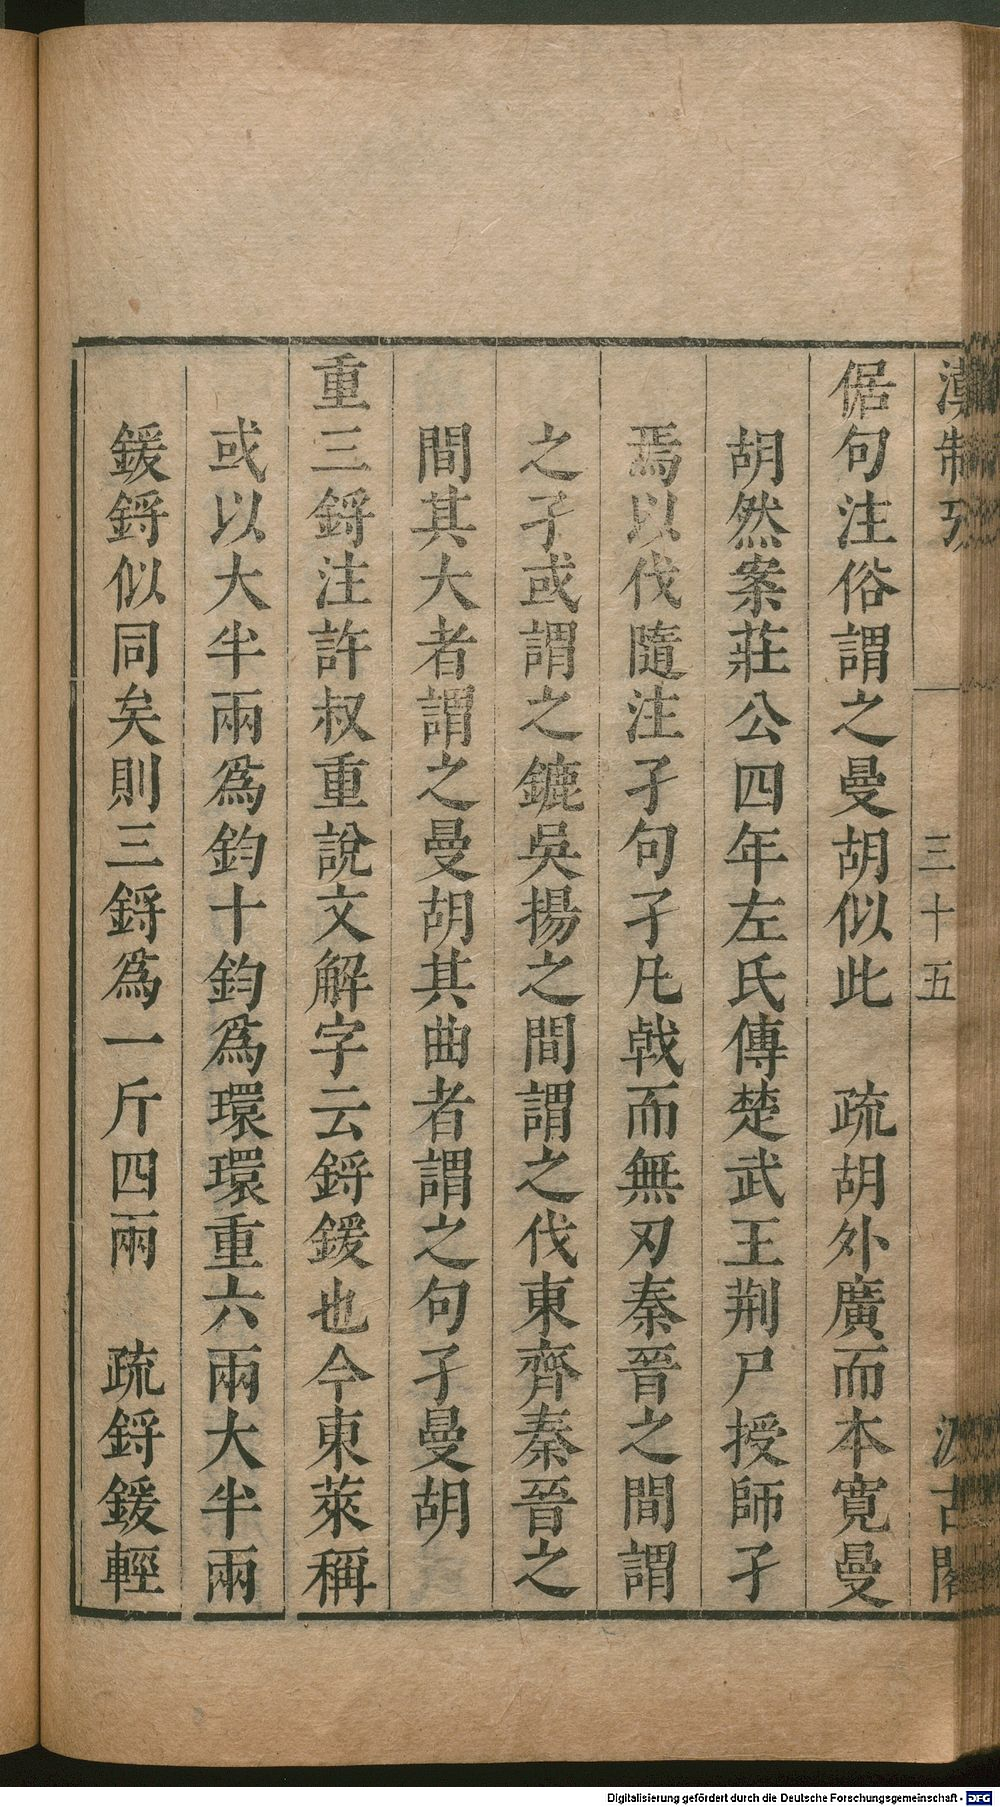 漢制攷 三十五 汲古閣
倨句注俗謂之曼胡似此 疏胡外廣而本寬曼
胡然案莊公四年左氏傳楚武王荆尸授師孑
焉以伐隨注孑句孑凡戟而無刃秦晉之間謂
之孑或謂之鏕吳揚之間謂之伐東齊秦晉之
間其大者謂之曼胡其曲者謂之句孑曼胡
重三鋝注許叔重說文解字云鋝鍰也今東萊稱
或以大半兩爲鈞十鈞爲環環重六兩大半兩
鍰鋝似同矣則三鋝爲一斤四兩 疏鋝鍰輕
Digitalisierung gefördert durch die Deutsche Forschungsgemeinschaft - DFG